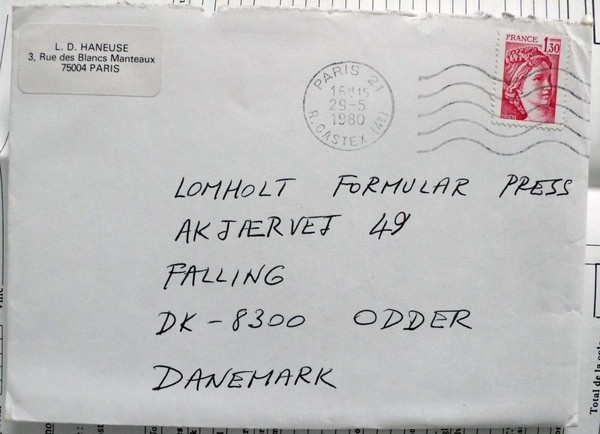 L. D. HANEUSE
3, Rue des Blancs Manteaux
75004 PARIS
PARIS 21
16H15
29-5
1980
R. CASTEX (4E)
FRANCE
1,30
LOMHOLT FORMULAR PRESS
AKJÆRVEJ 49
FALLING
DK-8300 ODDER
DANEMARK
Total de la